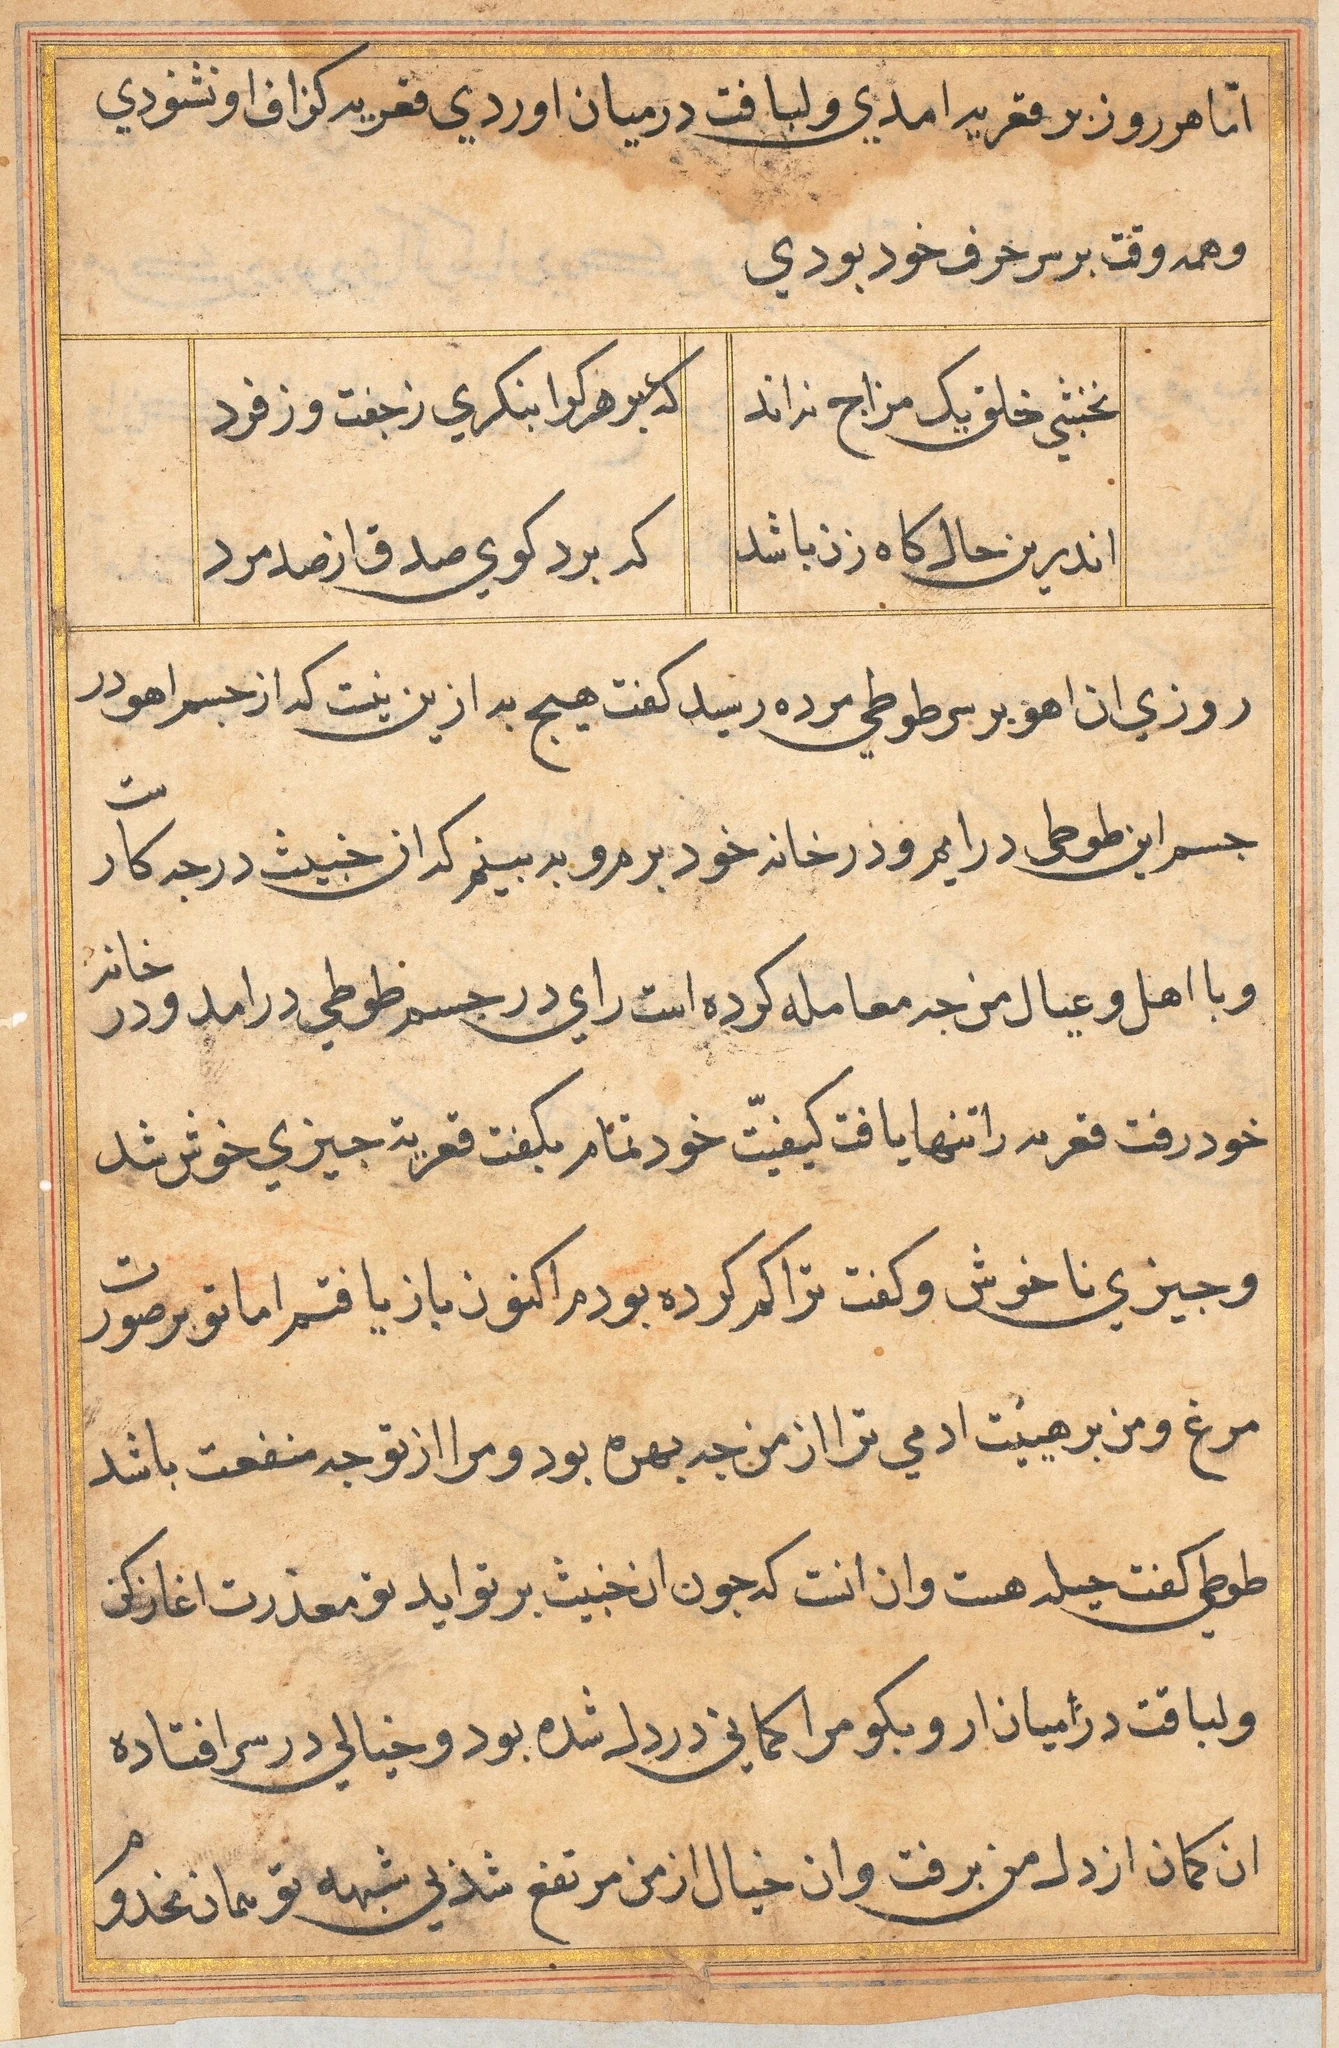 امّا هر روز بر قعریه امذی ولباقت درمیان اوردی قعریه کزاف او نشنودی
وهمه وقت بر سر حرف خود بودی
نخشبی خلق یک مزاج نداند که بهر هر کرا بنکری ز جفت وز فرد
اندرین حال کاه زن باشد که برد کوی صدق از صد مرد
روزی ان اهو بر سر طوطی مرده رسید کفت هیچ به ازین نیست که از جسم اهو در
جسم این طوطی درایم و در خانه خود بروم و به بینم که ان خبیث درجه کارست
وبا اهل وعیال من جه معامله کرده است رای در جسم طوطی درامد ودر خانه
خود رفت قعریه را تنها یافت کیفیّت خود تمام بکفت قعریه جیزی خوش شد
وجیزی ناخوش وکفت ترا کم کرده بودم اکنون باز یافتم اما تو بر صورت
مرغ ومن بر هیئت ادمی ترا از من جه بهره بود ومرا از تو جه منفعت باشد
طوطی کفت حیله هست وان انست که جون ان خبیث بر تو اید تو معذرت اغاز کن
ولباقت درمیان ار وبکو مرا کمانی در دل شده بود وخیالی در سر افتاده
ان کمان از دل من برفت وان خیال از من مرتفع شد بی شبهه تو همان مخدوم